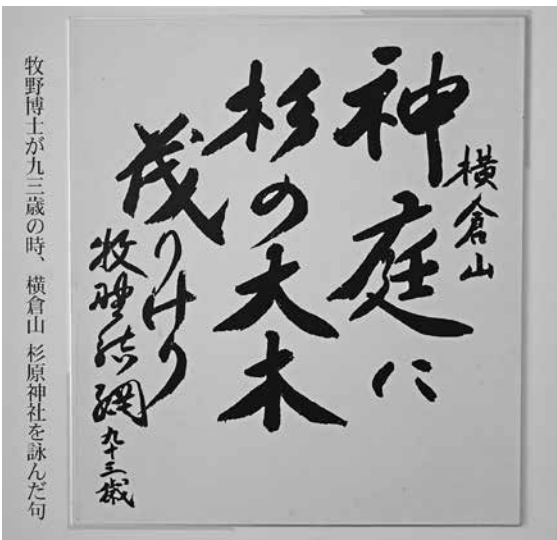 横倉山
神庭に
杉の大木
茂りけり
牧野結網 九十三歳
牧野博士が九三歳の時、横倉山 杉原神社を詠んだ句